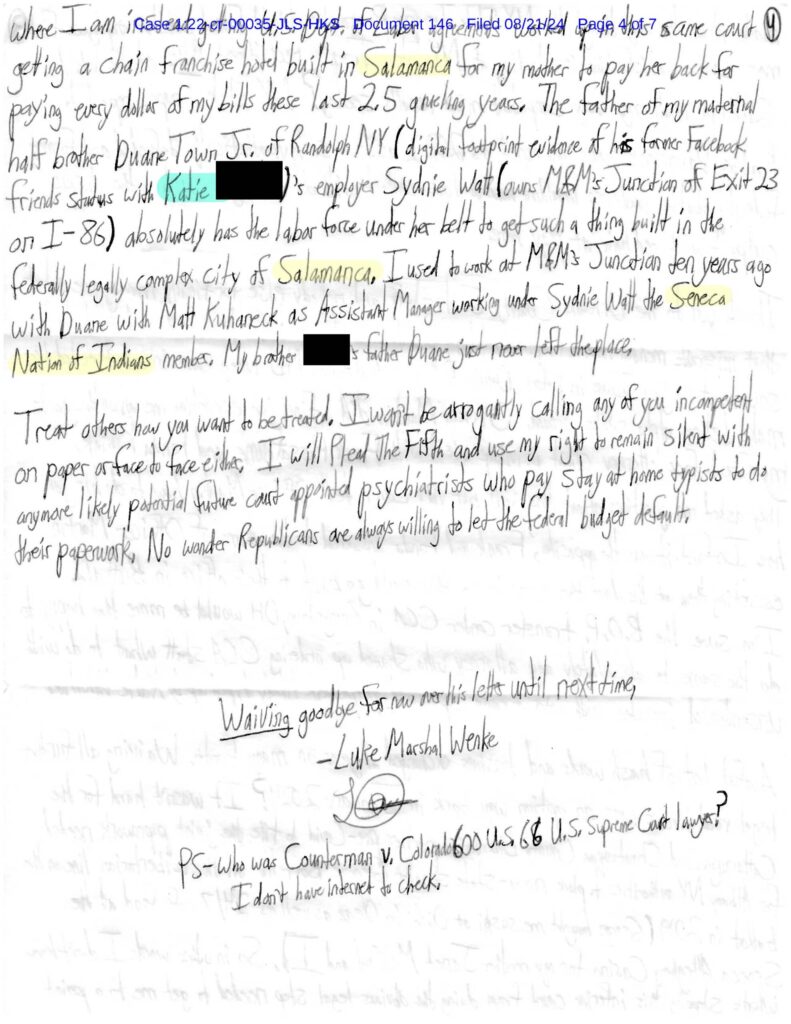 Case 1:22-cr-00035-JLS-HKS Document 146 Filed 08/21/24 Page 4 of 7
where I am instead getting U.S. Dept. of Labor agreements worked up in this same court 4
getting a chain franchise hotel built in Salamanca for my mother to pay her back for
paying every dollar of my bills these last 2.5 grueling years. The father of my maternal
half brother Duane Town Jr. of Randolph NY (digital footprint evidence of his former Facebook
friends status with Katie )'s employer Sydnie Watt (owns M&M's Junction of Exit 23
on I-86) absolutely has the labor force under her belt to get such a thing built in the
federally legally complex city of Salamanca. I used to work at M&M's Junction ten years ago
with Duane with Matt Kuhaneck as Assistant Manager working under Sydnie Watt the Seneca
Nation of Indians member. My brother 's father Duane just never left the place.
Treat others how you want to be treated. I won't be arrogantly calling any of you incompetent
on paper or face to face either. I will Plead The Fifth and use my right to remain silent with
anymore likely potential future court appointed psychiatrists who pay stay at home typists to do
their paperwork. No wonder Republicans are always willing to let the federal budget default.
Waiving goodbye for now over this letter until next time,
-Luke Marshal Wenke
PS- Who was Counterman v. Colorado 600 U.S. 66 U.S. Supreme Court lawyer?
I don't have internet to check.